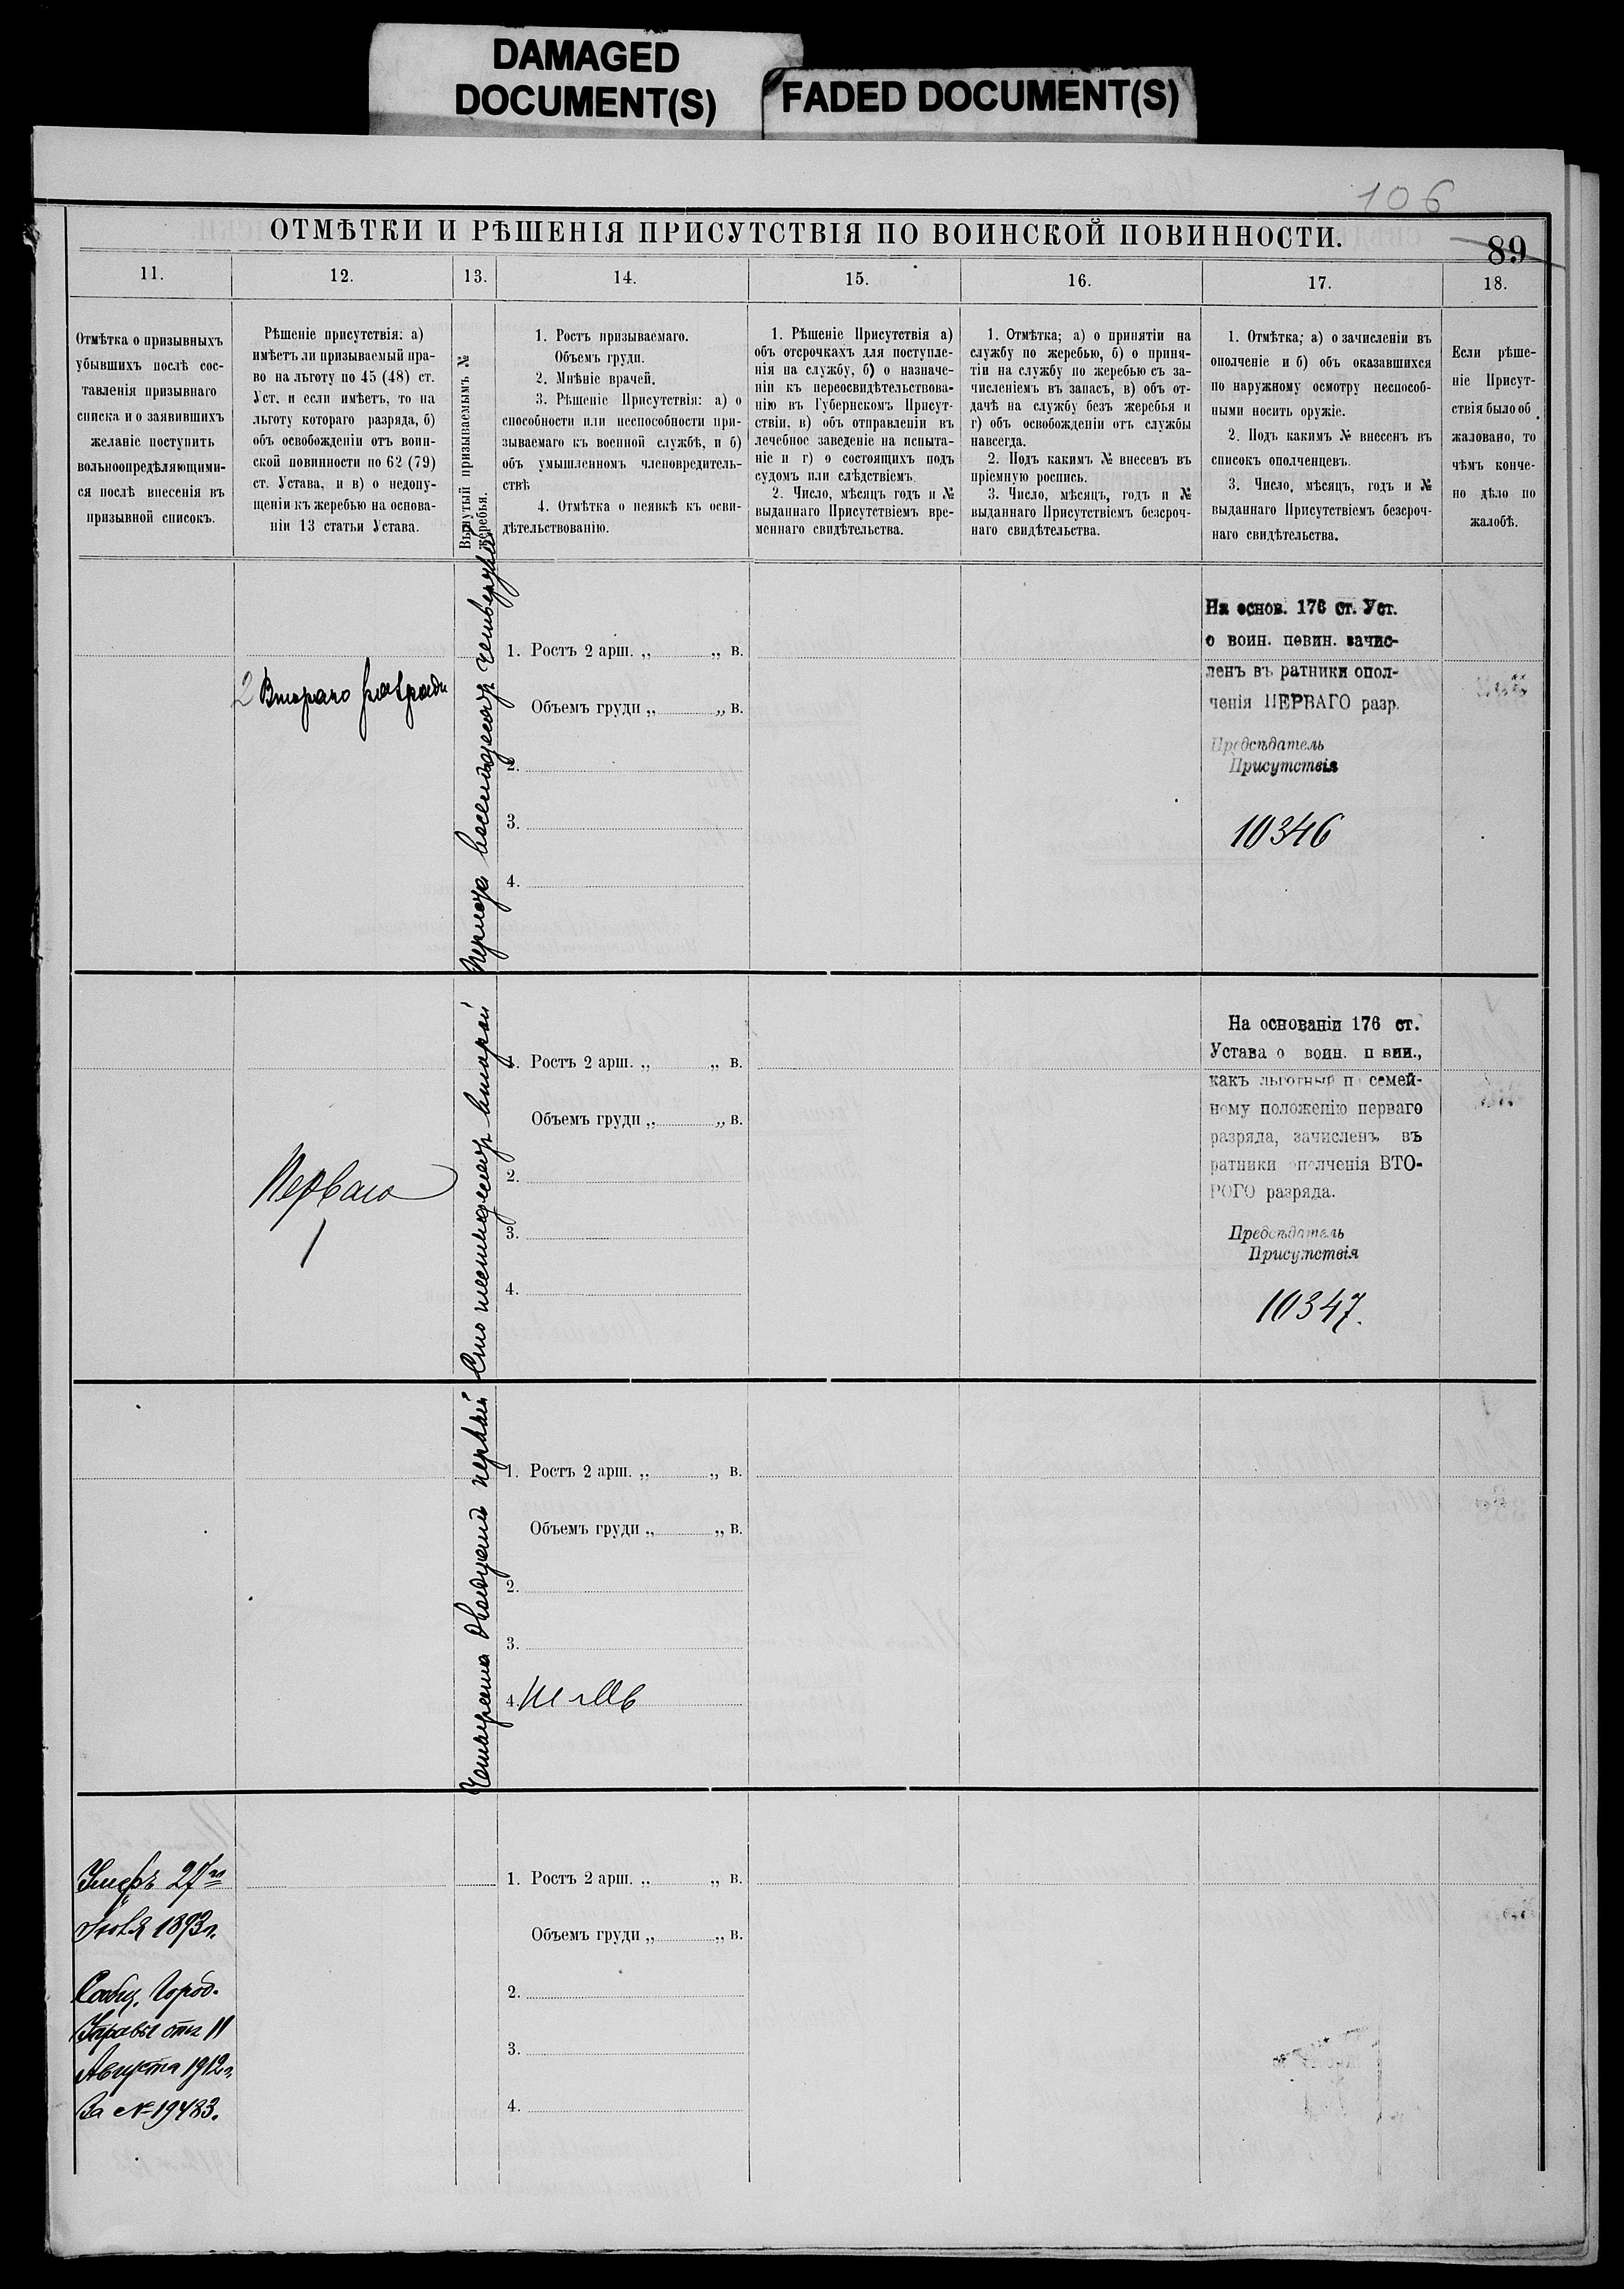 DAMAGED
DOCUMENT(S)
FADED DOCUMENT(S)
106
ОТМѢТКИ И РѢШЕНІЯ ПРИСУТСТВІЯ ПО ВОИНСКОЙ ПОВИННОСТИ.
89
11.
12.
13.
14.
15.
16.
17.
18.
Отмѣтка о призывныхъ
убывшихъ послѣ сос-
тавленія призывнаго
списка и о заявившихъ
желаніе поступить
вольноопредѣляющими-
ся послѣ внесенія въ
призывной списокъ.
Рѣшеніе присутствія: а)
имѣетъ ли призываемый пра-
во на льготу по 45 (48) ст.
Уст. и если имѣетъ, то на
льготу котораго разряда, б)
объ освобожденіи отъ воин-
ской повинности по 62 (79)
ст. Устава, и в) о недопу-
щеніи къ жеребью на основа-
ніи 13 статьи Устава.
Вынутый призываемымъ №
жеребья.
1. Ростъ призываемаго.
Объемъ груди.
2. Мнѣніе врачей.
3. Рѣшеніе Присутствія: а) о
способности или неспособности при-
зываемаго къ военной службѣ, и б)
объ умышленномъ членовредитель-
ствѣ
4. Отмѣтка о неявкѣ къ осви-
дѣтельствованію.
1. Рѣшеніе Присутствія а)
объ отсрочкахъ для поступле-
нія на службу, б) о назначе-
ніи къ переосвидѣтельствова-
нію въ Губернскомъ Присут-
ствіи, в) объ отправленіи въ
лечебное заведеніе на испыта-
ніе и г) о состоящихъ подъ
судомъ или слѣдствіемъ.
2. Число, мѣсяцъ годъ и №
выданнаго Присутствіемъ вре-
меннаго свидѣтельства.
1. Отмѣтка; а) о принятіи на
службу по жеребью, б) о приня-
тіи на службу по жеребью съ за-
численіемъ въ запасъ, в) объ от-
дачѣ на службу безъ жеребья и
г) объ освобожденіи отъ службы
навсегда.
2. Подъ какимъ № внесенъ въ
пріемную роспись.
3. Число, мѣсяцъ, годъ и №
выданнаго Присутствіемъ безсроч-
наго свидѣтельства.
1. Отмѣтка; а) о зачисленіи въ
ополченіе и б) объ оказавшихся
по наружному осмотру неспособ-
ными носить оружіе.
2. Подъ какимъ № внесенъ въ
списокъ ополченцевъ.
3. Число, мѣсяцъ, годъ и №
выданнаго Присутствіемъ безсроч-
наго свидѣтельства.
Если рѣше-
ніе Присут-
ствія было об
жаловано, то
чѣмъ конче-
но дѣло по
жалобѣ.
2 Втораго разряда
восемьдесятъ четвертый
1. Ростъ 2 арш. „ „ в.
Объемъ груди „ „ в.
2.
3.
4.
На основ. 176 ст. Уст.
о воин. повин. зачис-
ленъ въ ратники опол-
ченія ПЕРВАГО разр.
Предсѣдатель
Присутствія
10346
Перваго
1
Сто шестьдесятъ второй
1. Ростъ 2 арш. „ „ в.
Объемъ груди „ „ в.
2.
3.
4.
На основаніи 176 ст.
Устава о воин. п вин.,
какъ льготный п семей-
ному положенію перваго
разряда, зачисленъ въ
ратники ополченія ВТО-
РОГО разряда.
Предсѣдатель
Присутствія
10347.
Четыреста двадцать первый
1. Ростъ 2 арш. „ „ в.
Объемъ груди „ „ в.
2.
3.
4.
Умеръ 27го
1893 г.
Сообщ. Город.
Управы отъ 11
Августа 1912 г.
За № 19483.
1. Ростъ 2 арш. „ „ в.
Объемъ груди „ „ в.
2.
3.
4.